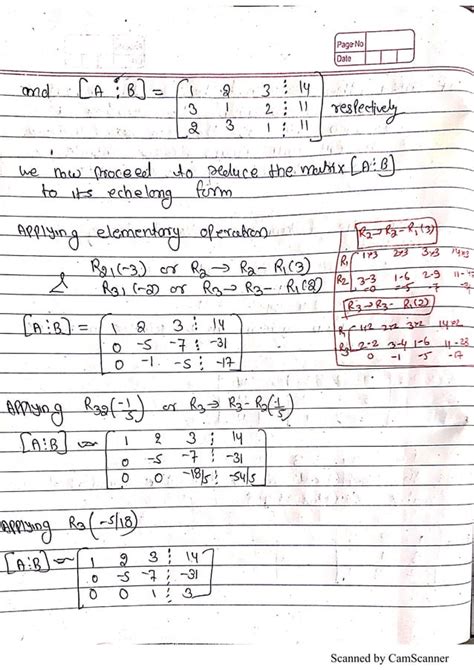 Page No
Date
and [A ⋮ B] = [ 1 2 3 ⋮ 14
3 1 2 ⋮ 11
2 3 1 ⋮ 11 ] respectively
we now proceed to reduce the matrix [A⋮B]
to its echelong form
Applying elementary operation
R21(-3) or R2→ R2- R1(3)
& R31(-2) or R3→ R3- R1(2)
R2→R2-R1(3)
R1 1×3 2×3 3×3 14×3
R2 3-3 1-6 2-9
0 -5 -7
R3→R3- R1(2)
R1 1×2 2×2 3×2 14×2
R3 2-2 3-4 1-6 11-28
0 -1 -5 -17
[A⋮B] = [ 1 2 3 ⋮ 14
0 -5 -7 ⋮ -31
0 -1 -5 ⋮ -17 ]
Applying R32(-1/5) or R3→ R3-R2(1/5)
[A⋮B] ~ [ 1 2 3 ⋮ 14
0 -5 -7 ⋮ -31
0 0 -18/5 ⋮ -54/5 ]
Applying R3(-5/18)
[A⋮B] ~ [ 1 2 3 ⋮ 14
0 -5 -7 ⋮ -31
0 0 1 ⋮ 3 ]
Scanned by CamScanner